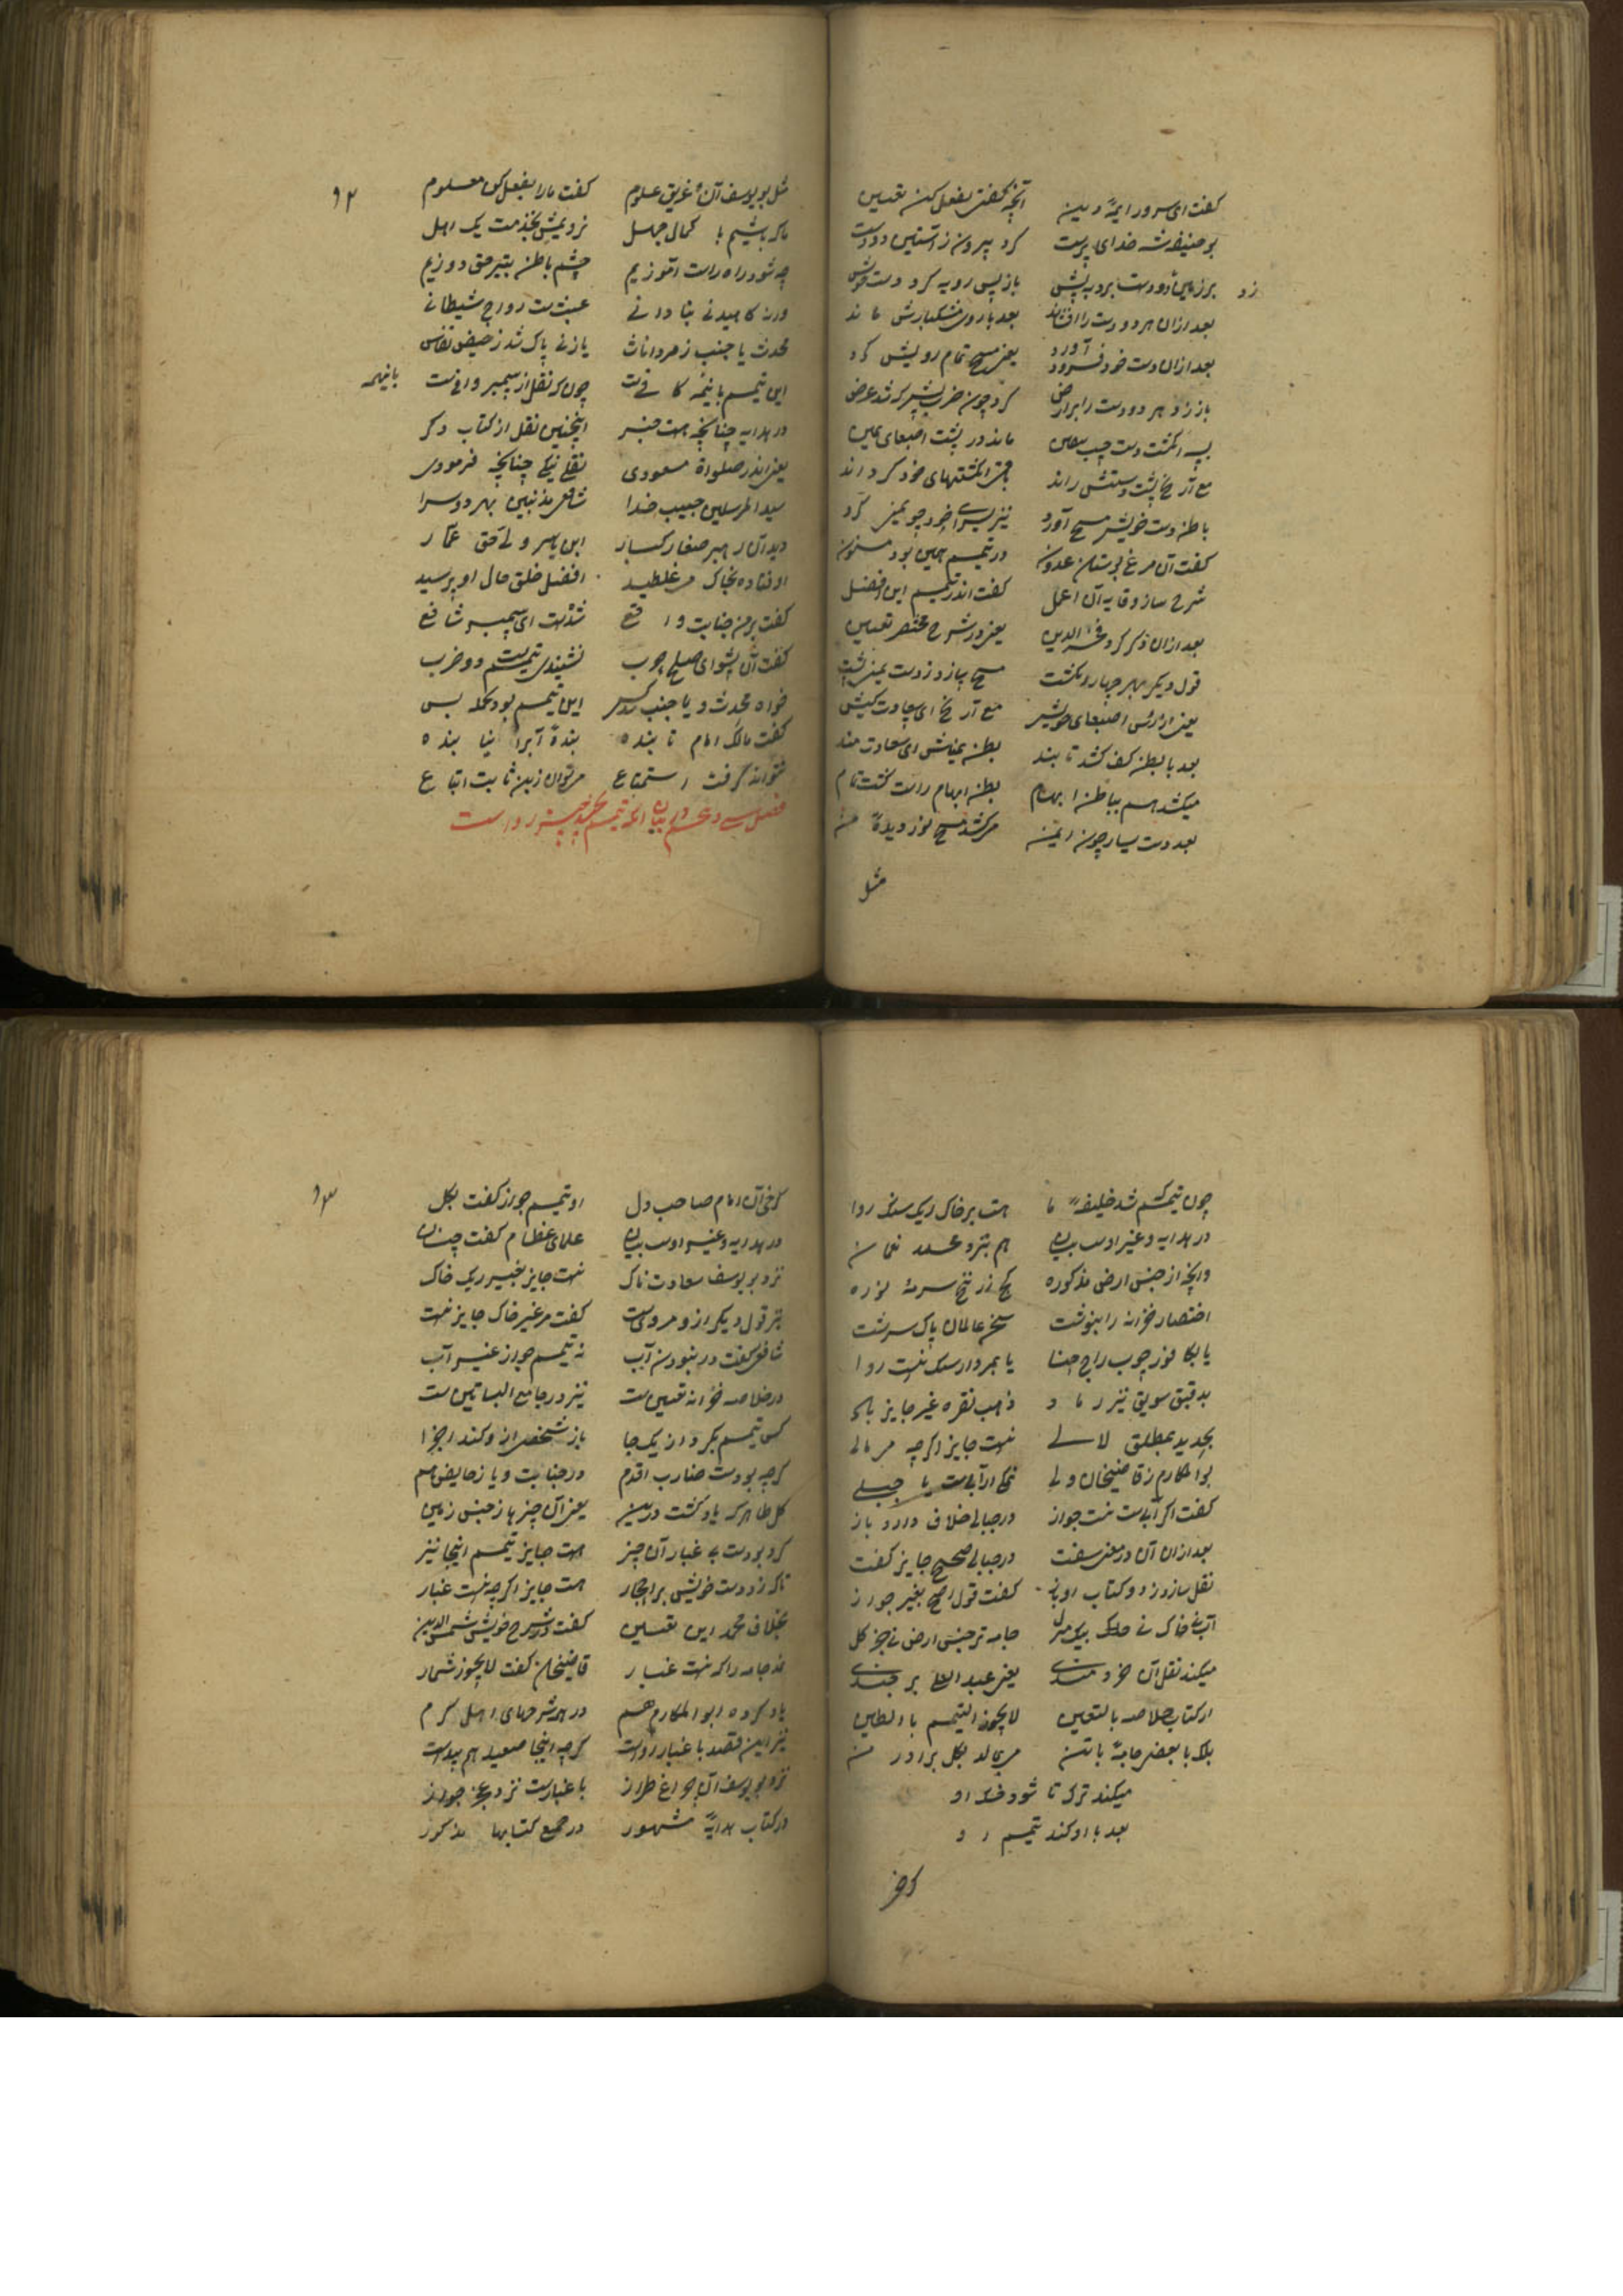 گفت ای سرور ایمهٔ دین آنچه گفتی بفعل کن تعیین
بو حنیفه شه خدای پرست کرد بیرون ز آستین دو دست
زد بر زمین دو دست برد به پیش باز پس رویه کرد دست خویش
بعد ازان هر دو دست را افشاند بعد با روی مشکبارش ماند
بعد ازان دست خود فرود آورد یعنی مسح تمام رویش کرد
باز زد هر دو دست را بر ارض کرد چون ضرب پیشتر که شد عرض
پس انگشت دست چپ بیقین ماند در پشت اصبعای یمین
مع آرنج پشت دستش راند باقی انگشتهای خود گرداند
باطن دست خویش مسح آورد نیز یسرای خود چو یمنی کرد
گفت آن مرغ بوستان عدون در تیمم همین بود مسنون
شرح ساز وقایه آن اعمل گفت اندر تیمم این افضل
بعد ازان ذکر کرد فخر الدین یعنی در شرح مختصر تعیین
قول دیگر بهر چهار انگشت مسح سازد ز دست یمنی پشت
یعنی از رؤس اصبعای خویش مع آرنج ای سعادت کیش
بعد با بطن کف کشد تا بند بطن یمناش ای سعادت مند
میکشد هم بباطن ابهام بطن ابهام راست گشت تمام
بعد دست یسار چون ایمن می کشد مسح نور دیدهٔ من
مثل
۹۲
مثل بو یوسف آن غریق علوم گفت ما را بفعل کن معلوم
ما که باشیم با کمال جهل نزدیمش بخدمت یک اهل
چه شود راه راست آموزیم چشم باطن بتیر حق دوزیم
ورنه کاهیدنی بنادانی عبث ست رواج شیطانی
محدث یا جنب ز مرد اناث یا زنی پاک شد ز حیض نفاس
این تیمم باینهمه کافیست چون که نقل از پیمبر وافیست باینهمه
در هدایه چنانچه هست خبر اینچنین نقل از کتاب دگر
یعنی اندر صلواة مسعودی نقلی نیکی چنانچه فرمودی
سید المرسلین حبیب خدا شافع مذنبین بهر دو سرا
دید آن رهبر صغار کبار ابن یاسر ولی حق عمار
اوفتاده بخاک می غلطید افضل خلق حال او پرسید
گفت بر من جنابت واقع شدست ای پیمبر شافع
گفت آن پیشوای صلح چوب نشنیدی تیمم ست دو ضرب
خواه محدث و یا جنب هر کس این تیمم بود بجمله بس
گفت مالک امام تابنده بندهٔ آبرا نیابنده
نتواند گرفت استمتاع می توان زین ثابت اتباع
فصل سی و یکم در بیان آنکه تیمم بچه چیز رواست
چون تیمم شد خلیفهٔ ما هست بر خاک ریک سنگ روا
در هدایه و غیر اوست بیان هم بنزد محمد نعمان
وانچه از جنس ارض مذکوره گچ زرنیخ سرمه نوره
اختصار خزانه را بنوشت سخن عالمان پاک سرشت
یا بکافور چوب راج حنا یا بمردارسنک نیست روا
بدقیق سویق نیز رماد ذهب نقره غیر جایز باد
بحدید بمطلق لالی نیست جایز اگرچه مرمالی
بوالمکارم ز قاضیخان ولی نمک ار آبیست یا جبلی
گفت اگر آبیست نیست جواز در جبالی خلاف دارد باز
بعد ازان آن در معنی سفت در جبالی صحیح جایز گفت
نقل سازد ز دو کتاب او باز گفت قول اصح بغیر جواز
آب نی خاک نی بیک منزل جامه تر جنس ارض نی جز گل
میکند نقل آن خردمندی یعنی عبد العلی برجندی
از کتاب خلاصه بالتعیین لا یجوز التیمم بالطین
بلکه با بعض جامهٔ با تن می بمالد بگل برادر من
میکند ترک تا شود خشک او
بعد با او کند تیمم رو
کرخی
۹۳
کرخی آن امام صاحب دل او تیمم جواز گفت بگل
در هدایه و غیر اوست بیان علمای عظام گفت چنان
نزد بو یوسف سعادت ناک نیست جایز بغیر ریک خاک
بر قول دیگر ازو مرویست گفت مر غیر خاک جایز نیست
شافعی گفت در نبودن آب نه تیمم جواز غیر آب
در خلاصه خزانه تعیین ست نیز در جامع البساتین ست
کس تیمم بکرد از یک جا باز شخصی ازو کند اجزا
گرچه بودست ضارب اقدم در جنابت و یا ز حایض هم
کل طاهر که یاد گشت درین یعنی آن چیزها ز جنس زمین
کرد بودست به غبار آن چیز هست جایز تیمم اینجا نیز
تا که زد دست خویش بر احجار هست جایز اگرچه نیست غبار
بخلاف محمد این تعیین گفت در شرح خویش شمس الدین
جامه را که نیست غبار قاضیخان گفت لا یجوز شمار
یاد کرده ابوالمکارم هم در همه شرحهای اهل کرم
نیز این قصد با غبار رواست گرچه اینجا صعید هم پیداست
نزد بو یوسف آن چراغ طراز با غبارست نزد عجز جواز
در کتاب هدایهٔ مشهور در جمیع کتابها مذکور